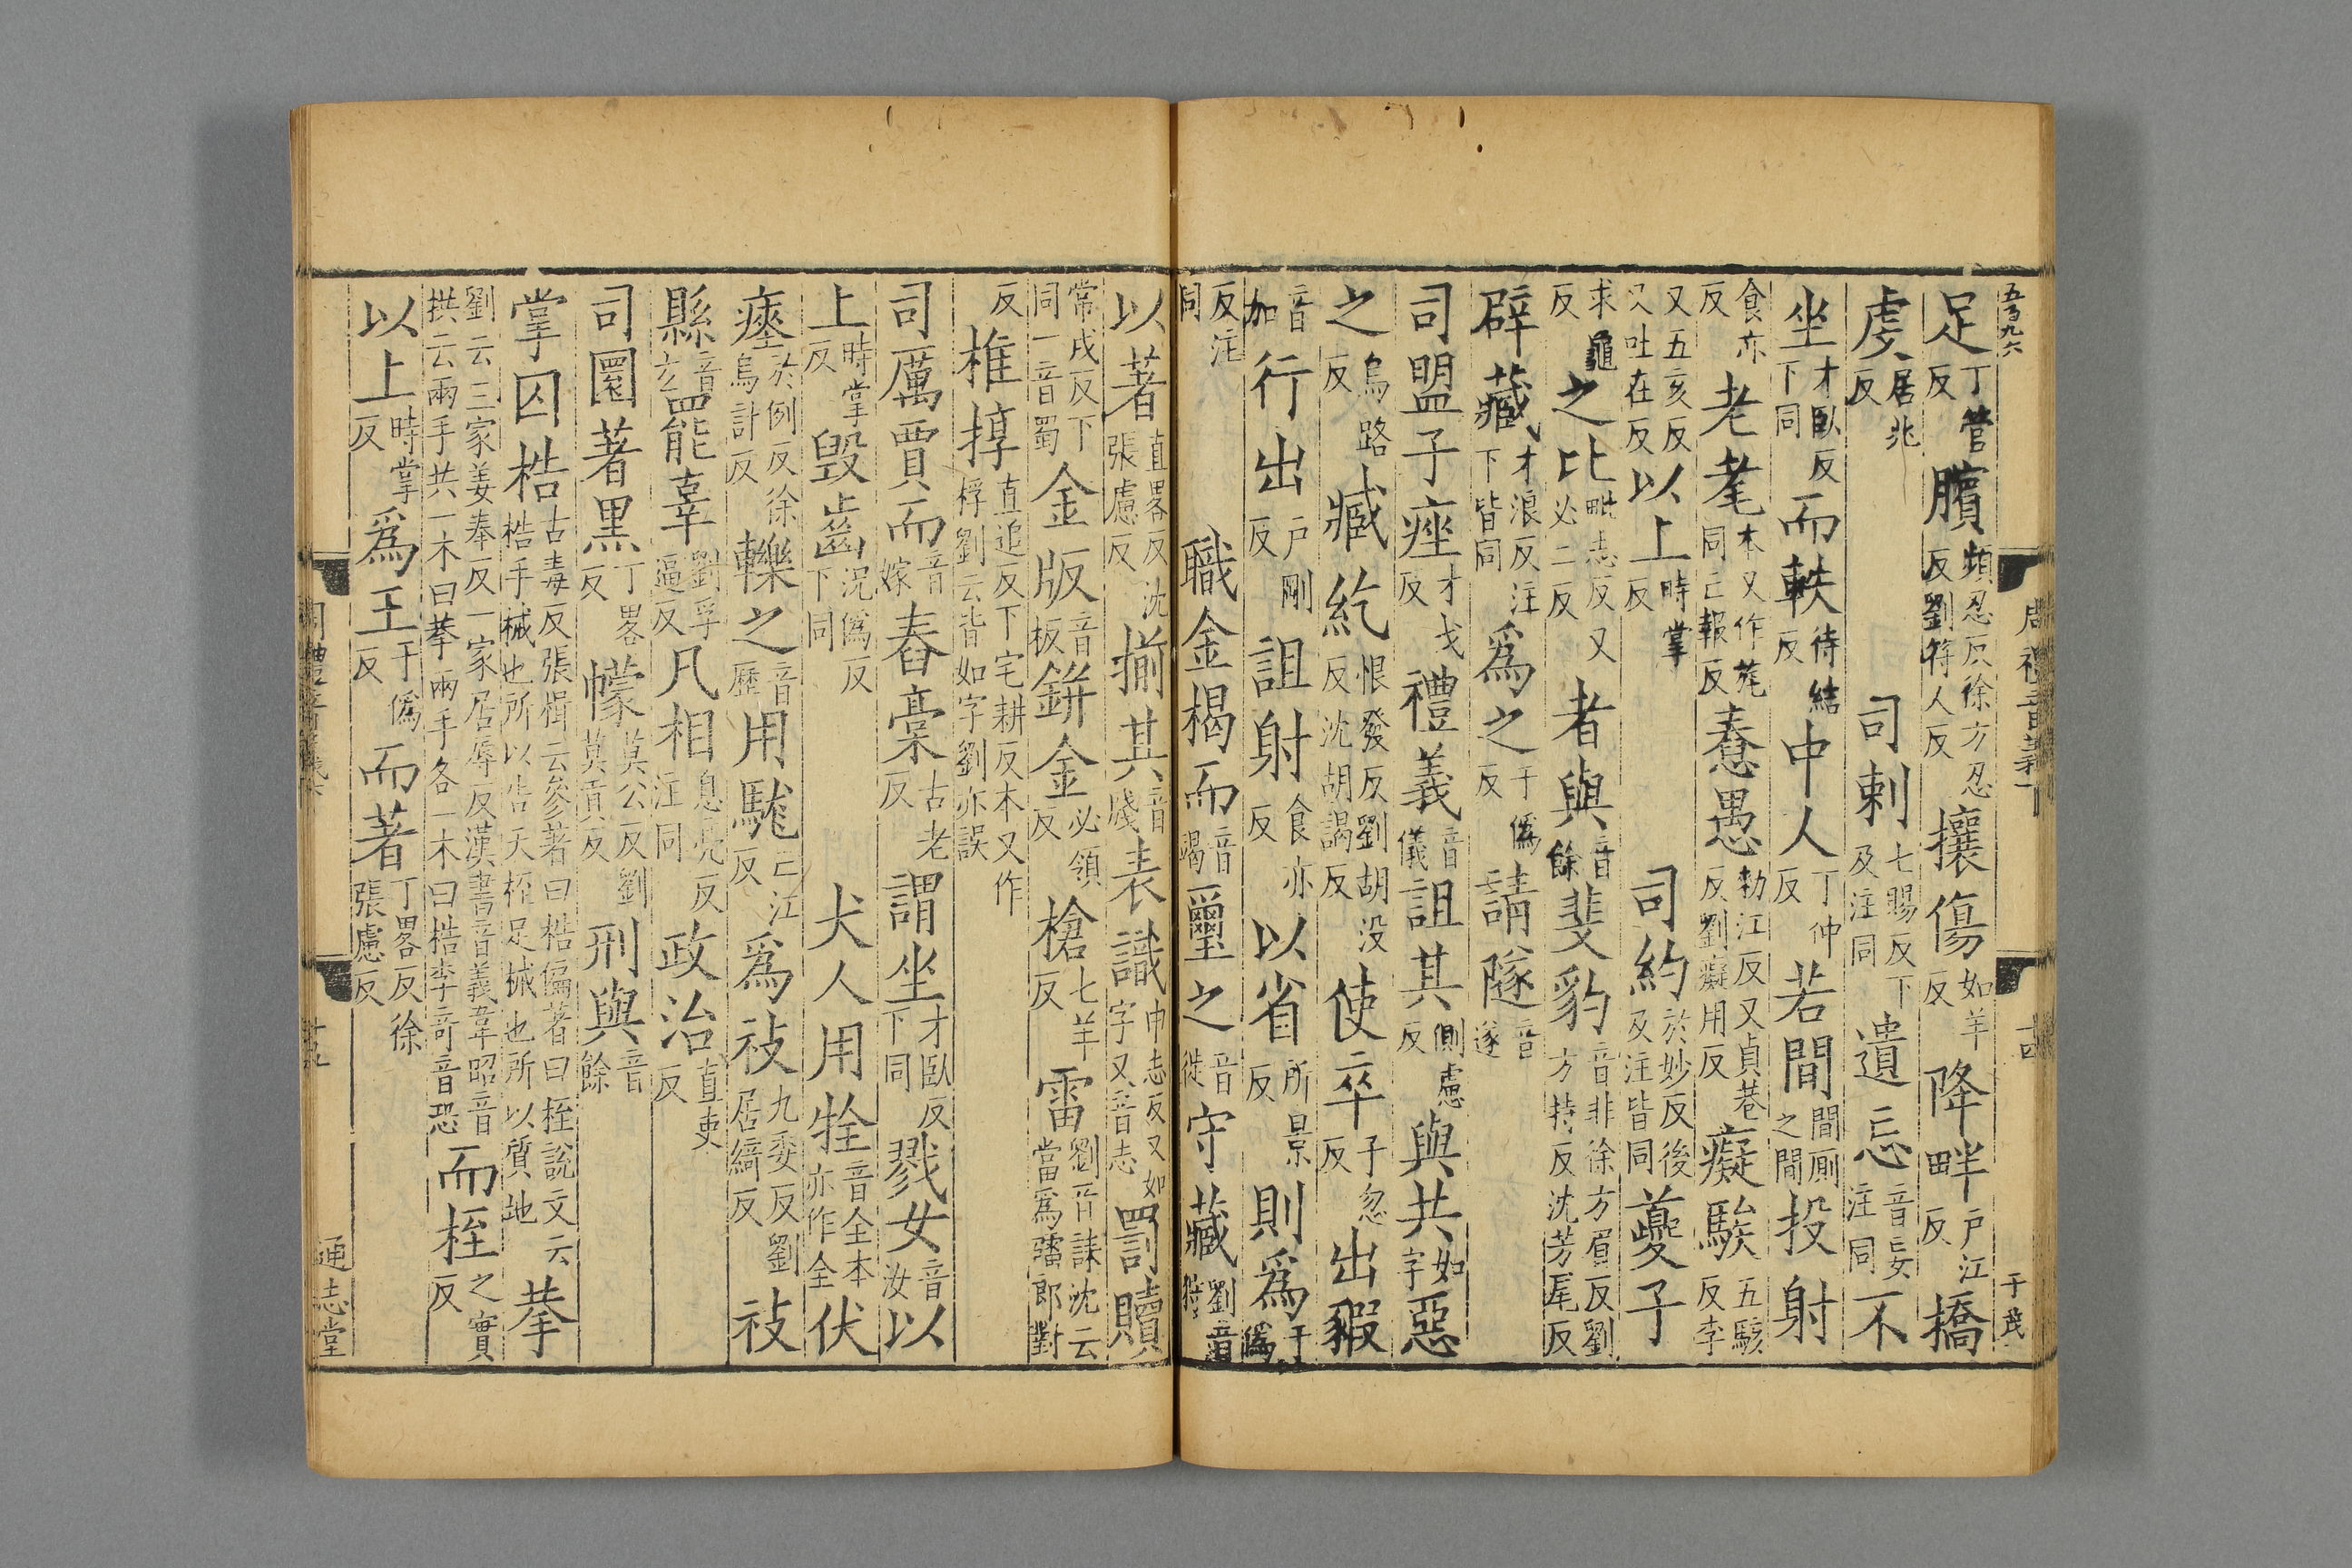 五百九六
足丁管反臏頻忍反徐方忍反劉符人反攘傷如羊反降畔戶江反橋
虔居兆反司刺七賜反下及注同遺忘音妄注同不
坐才臥反下同而軼待結反中人丁仲反若間間厠之間投射
食亦反老耄本又作旄同亡報反惷愚勑江反又貞巷反劉癡用反癡騃五駭反李
又五亥反又吐在反以上時掌反司約於妙反後及注皆同夔子
求龜反之比毗志反又必二反者與音餘斐豹音非徐方眉反劉方持反沈芳尾反
辟藏才浪反注下皆同爲之于僞反請隧音遂
司盟子痤才戈反禮義音儀詛其側慮反與共如字惡
之烏路反臧紇恨發反劉胡沒反沈胡謁反使卒子忽反出豭
音加行出戶剛反詛射食亦反以省所景反則爲于僞
反注同職金楬而音竭璽之音徙守藏劉音狩
以著直畧反沈張慮反揃其音牋表識巾志反又如字又音志罰贖
常戍反下同一音蜀金版音板鉼金必領反槍七羊反雷劉音誄沈云當爲礧郎對
反椎椁直追反下宅耕反本又作桴劉云皆如字劉亦誤
司厲賈而音嫁舂槀古老反謂坐才臥反下同戮女音汝以
上時掌反毀齒況僞反下同犬人用牷音全本亦作全伏
瘞於例反徐烏計反轢之音歷用駹亡江反爲祋九委反劉居綺反祋
縣音玄罷辜劉孚逼反凡相息亮反注同政治直吏反
司圜著黑丁畧反幪莫公反劉莫貢反刑與音餘
掌囚梏古毒反張揖云參著曰梏偏著曰桎說文云梏手械也所以告天桎足械也所以質地拲
劉云三家姜奉反一家居辱反漢書音義韋昭音拱云兩手共一木曰拲兩手各一木曰梏李奇音恐而桎之實反
以上時掌反爲王于僞反而著丁畧反徐張慮反
通志堂